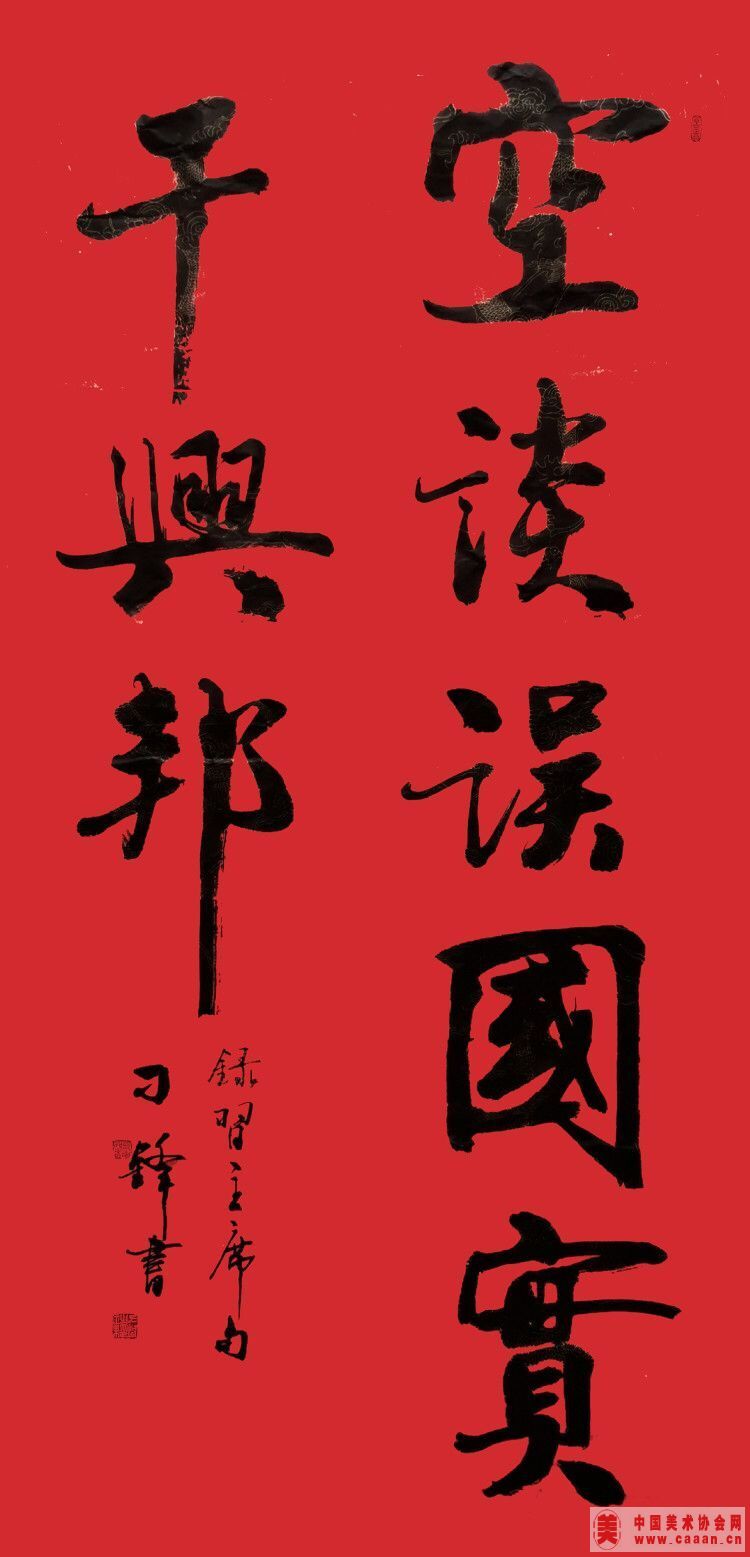 空談誤國實
干興邦
録習主席句
刁鋒書
中国美术协会网
www.caaan.cn